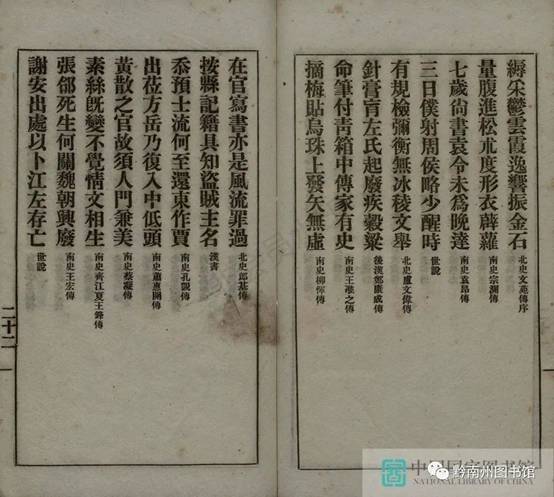 縟采鬱雲霞逸響振金石 北史文苑傳序
量腹進松朮度形衣薜蘿 南史宗測傳
七歲尚書袁令未為晚達 南史袁昂傳
三日僕射周侯略少醒時 世說
有規檢彌衡無冰稜文舉 北史盧文偉傳
針膏肓左氏起廢疾穀梁 後漢鄭康成傳
命筆付青箱中傳家有史 南史王淮之傳
摘梅貼烏珠上發矢無虛 南史柳惲傳
在官寫書亦是風流罪過 北史郎基傳
按縣記籍具知盜賊主名 漢書
忝預士流何至還東作賈 南史孔覬傳
出莅方岳乃復入中低頭 南史蕭惠開傳
黃散之官故須人門兼美 南史蔡凝傳
素絲既變不覺情文相生 南史齊江夏王鋒傳
張邰死生何關魏朝興廢 南史王宏傳
謝安出處以卜江左存亡 世說
二十二
中国国家图书馆
NATIONAL LIBRARY OF CHINA
黔南州图书馆